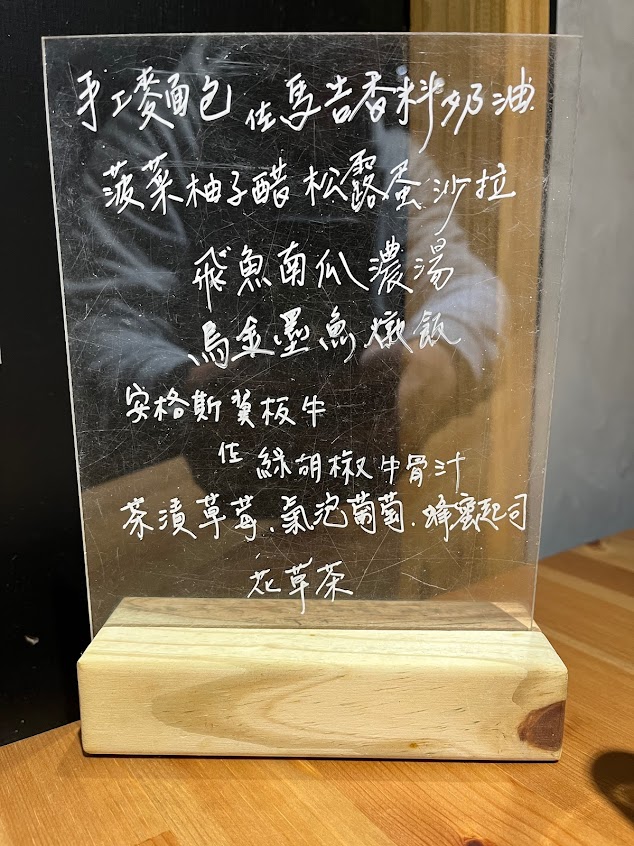 手工麵包 佐馬告香料奶油
菠菜柚子醋 松露蛋沙拉
飛魚南瓜濃湯
烏金墨魚燉飯
安格斯翼板牛
佐 綠胡椒牛骨汁
茶漬草莓.氣泡葡萄.蜂蜜起司
花草茶